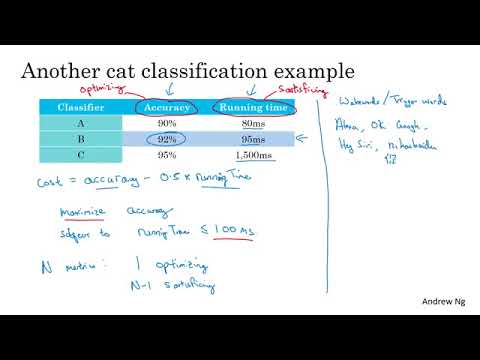 Another cat classification example
optimizing
satisficing
Classifier Accuracy Running time
A 90% 80ms
B 92% 95ms
C 95% 1,500ms
cost = accuracy - 0.5 x runningTime
maximize accuracy
subject to runningTime ≤ 100 ms.
N metrics: 1 optimizing
N-1 satisficing
Wakewords / Trigger words
Alexa, Ok Google,
Hey Siri, nihaobaidu
你好
Andrew Ng